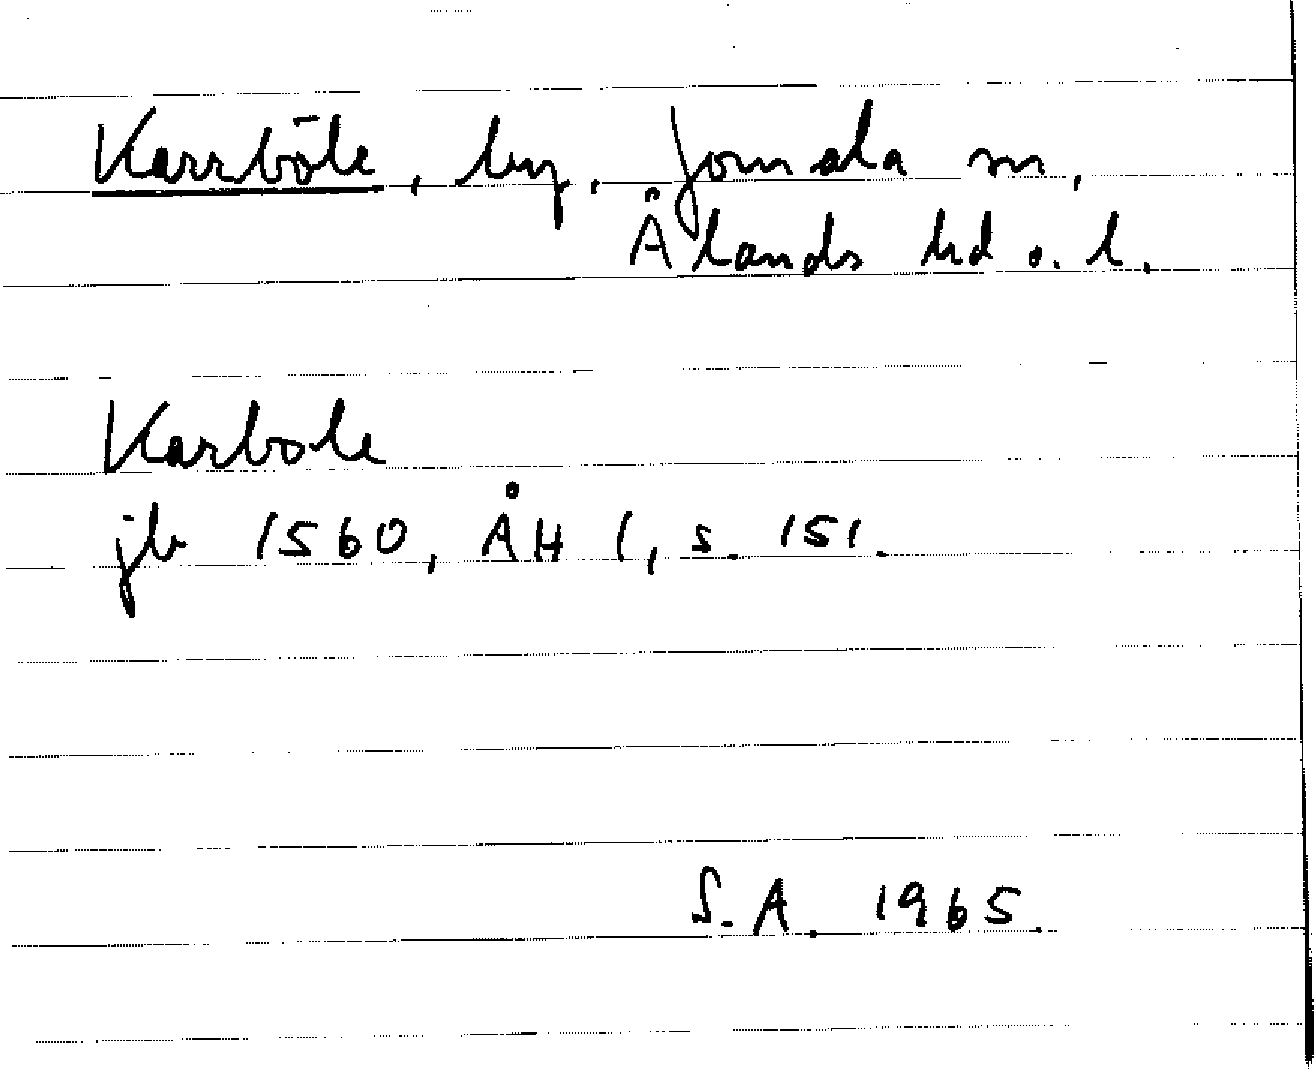 Karrböle, by, Jomala sn,
Ålands hd o. l.
Karbole
jb 1560, ÅH 1, s. 151.
S.A. 1965.